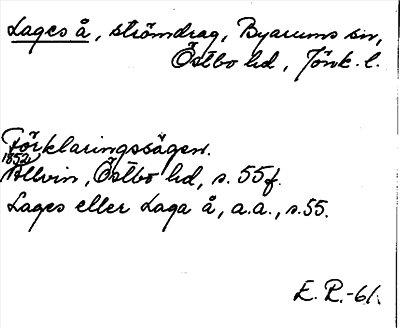 Lages å, strömdrag, Byarums sn,
Östbo hd, Jönk. l.
Förklaringssägen.
1852
Allvin, Östbo hd, s. 55f.
Lages eller Laga å, a.a., s.55.
E. P.-61.